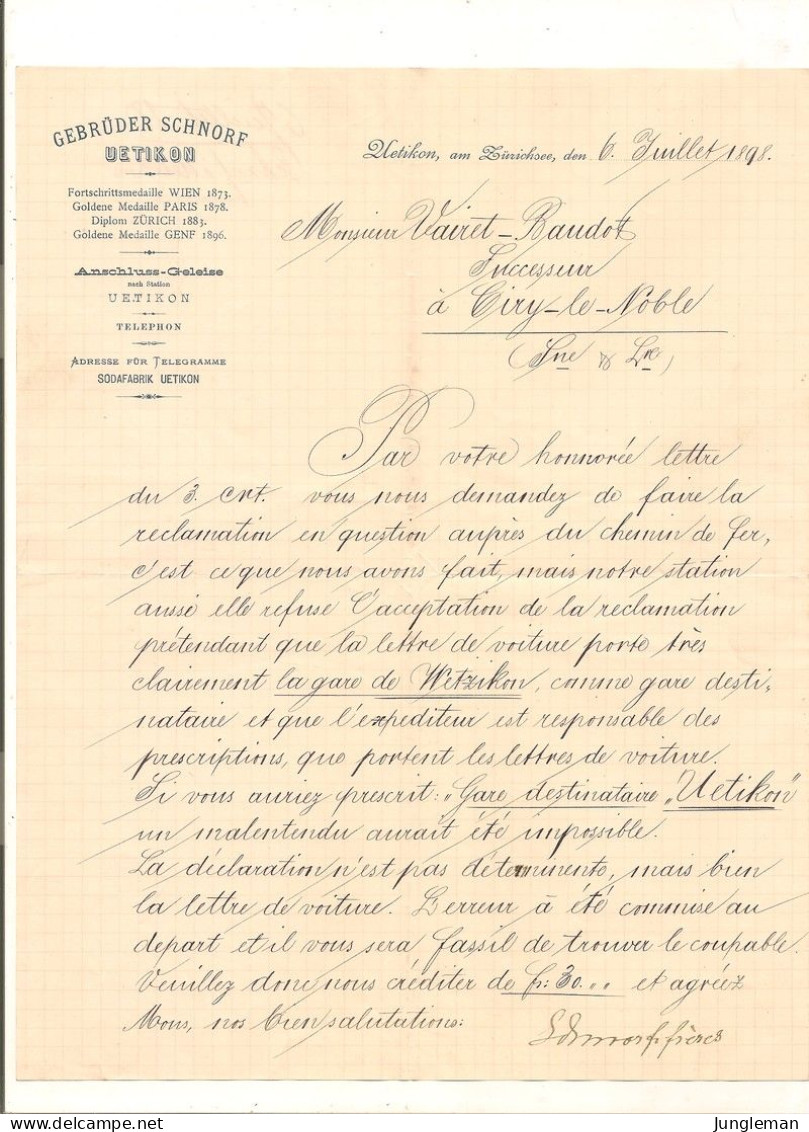 GEBRÜDER SCHNORF
UETIKON
Fortschrittsmedaille WIEN 1873.
Goldene Medaille PARIS 1878.
Diplom ZÜRICH 1883.
Goldene Medaille GENF 1896.
Anschluss-Geleise
nach Station
UETIKON
TELEPHON
ADRESSE FÜR TELEGRAMME
SODAFABRIK UETIKON
Uetikon, am Zürichsee, den 6. Juillet 1898.
Monsieur Vairet-Baudot
Successeur
à Ciry-le-Noble
(Sne & Lre)
Par votre honnorée lettre
du 3. crt. vous nous demandez de faire la
reclamation en question auprès du chemin de fer,
c'est ce que nous avons fait, mais notre station
aussi elle refuse l'acceptation de la reclamation
prétendant que la lettre de voiture porte très
clairement la gare de Wetzikon, comme gare desti-
nataire et que l'expediteur est responsable des
prescriptions, que portent les lettres de voiture.
Si vous auriez prescrit: „Gare destinataire „Uetikon"
un malentendu aurait été impossible.
La déclaration n'est pas determinente, mais bien
la lettre de voiture. L'erreur à été commise au
depart et il vous sera fassil de trouver le coupable.
Veuillez donc nous créditer de fr: 30.,, et agréez
Mons, nos bien salutations:
Schnorf frères
delcampe.net
Jungleman